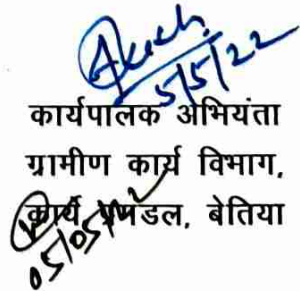 5/5/22
कार्यपालक अभियंता
ग्रामीण कार्य विभाग,
कार्य प्रमंडल, बेतिया
05/05/22